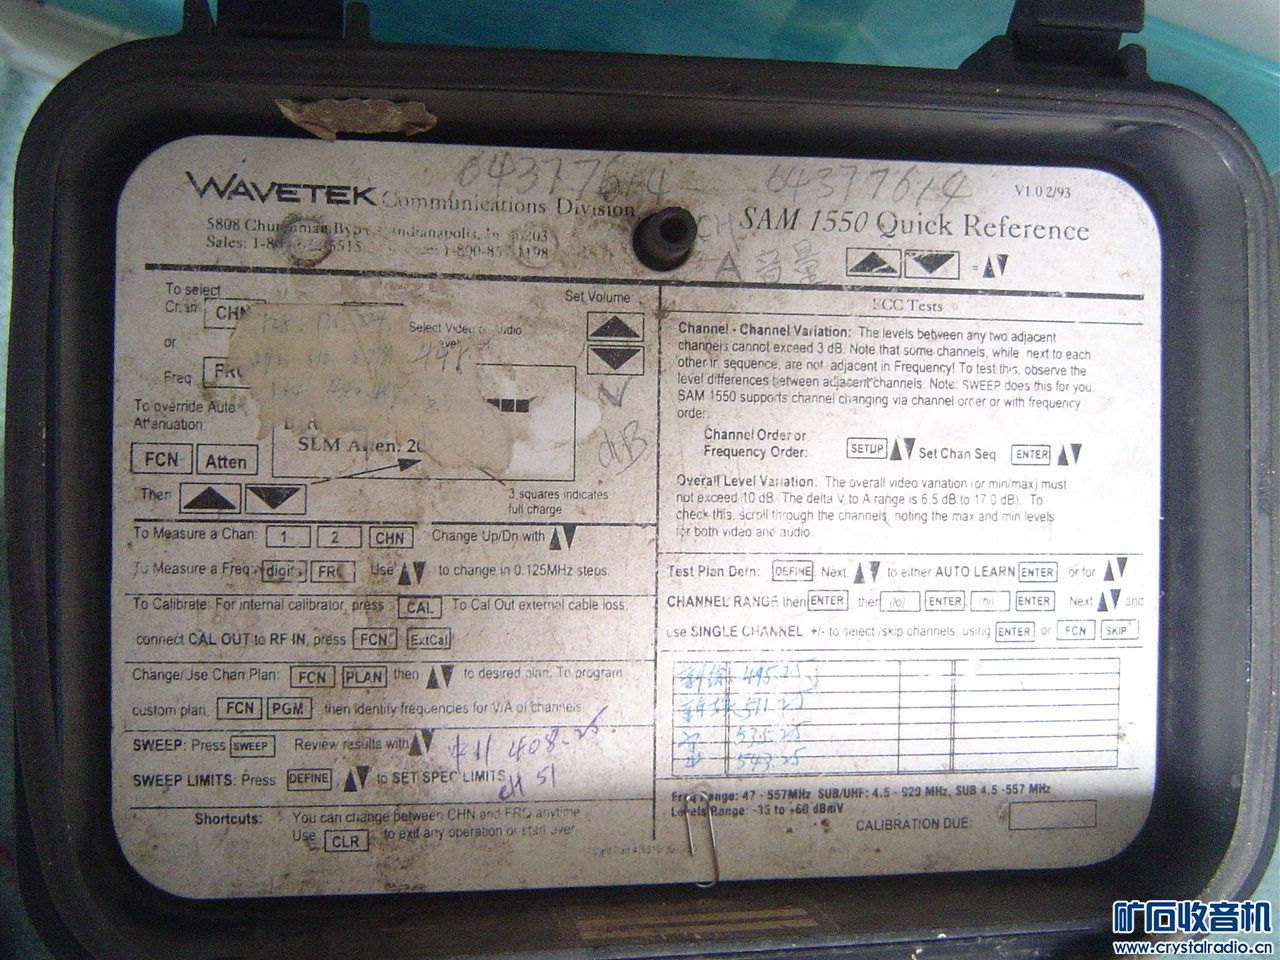 64377614 64377614
WAVETEK Communications Division
5808 Churchman Indianapolis, In
Sales:
SAM 1550 Quick Reference
V1.0 2/93
CH
A 音量
=
To select
Chan CHN
or
Freq FRQ
Select Video or Audio
448
Set Volume
To override Auto
Attenuation:
SLM Atten: 20
FCN Atten
Then
dB
3 squares indicates
full charge
To Measure a Chan: 1 2 CHN Change Up/Dn with
To Measure a Freq digits FRQ Use to change in 0.125MHz steps.
To Calibrate: For internal calibrator, press CAL To Cal Out external cable loss,
connect CAL OUT to RF IN, press FCN ExtCal
Change/Use Chan Plan: FCN PLAN then to desired plan. To program
custom plan, FCN PGM then identify frequencies for V/A of channels
SWEEP: Press SWEEP Review results with
408.25
SWEEP LIMITS: Press DEFINE to SET SPEC LIMITS
CH 51
Shortcuts: You can change between CHN and FRQ anytime
Use CLR to exit any operation or start over
FCC Tests
Channel - Channel Variation: The levels between any two adjacent
channels cannot exceed 3 dB. Note that some channels, while next to each
other in sequence, are not adjacent in Frequency! To test this, observe the
level differences between adjacent channels. Note: SWEEP does this for you.
SAM 1550 supports channel changing via channel order or with frequency
order.
Channel Order or
Frequency Order: SETUP Set Chan Seq ENTER
Overall Level Variation. The overall video variation (or min/max) must
not exceed 10 dB. The delta V to A range is 6.5 dB to 17.0 dB). To
check this, scroll through the channels, noting the max and min levels
for both video and audio.
Test Plan Defn: DEFINE Next to either AUTO LEARN ENTER or for
CHANNEL RANGE then ENTER then (lo) ENTER (hi) ENTER Next and
use SINGLE CHANNEL +/- to select/skip channels, using ENTER or FCN SKIP
495.25
511.25
535.25
543.25
Freq Range: 47 - 557MHz SUB/UHF: 4.5 - 920 MHz, SUB 4.5 -557 MHz
Levels Range: -35 to +60 dBmV
CALIBRATION DUE:
矿石收音机
www.crystalradio.cn